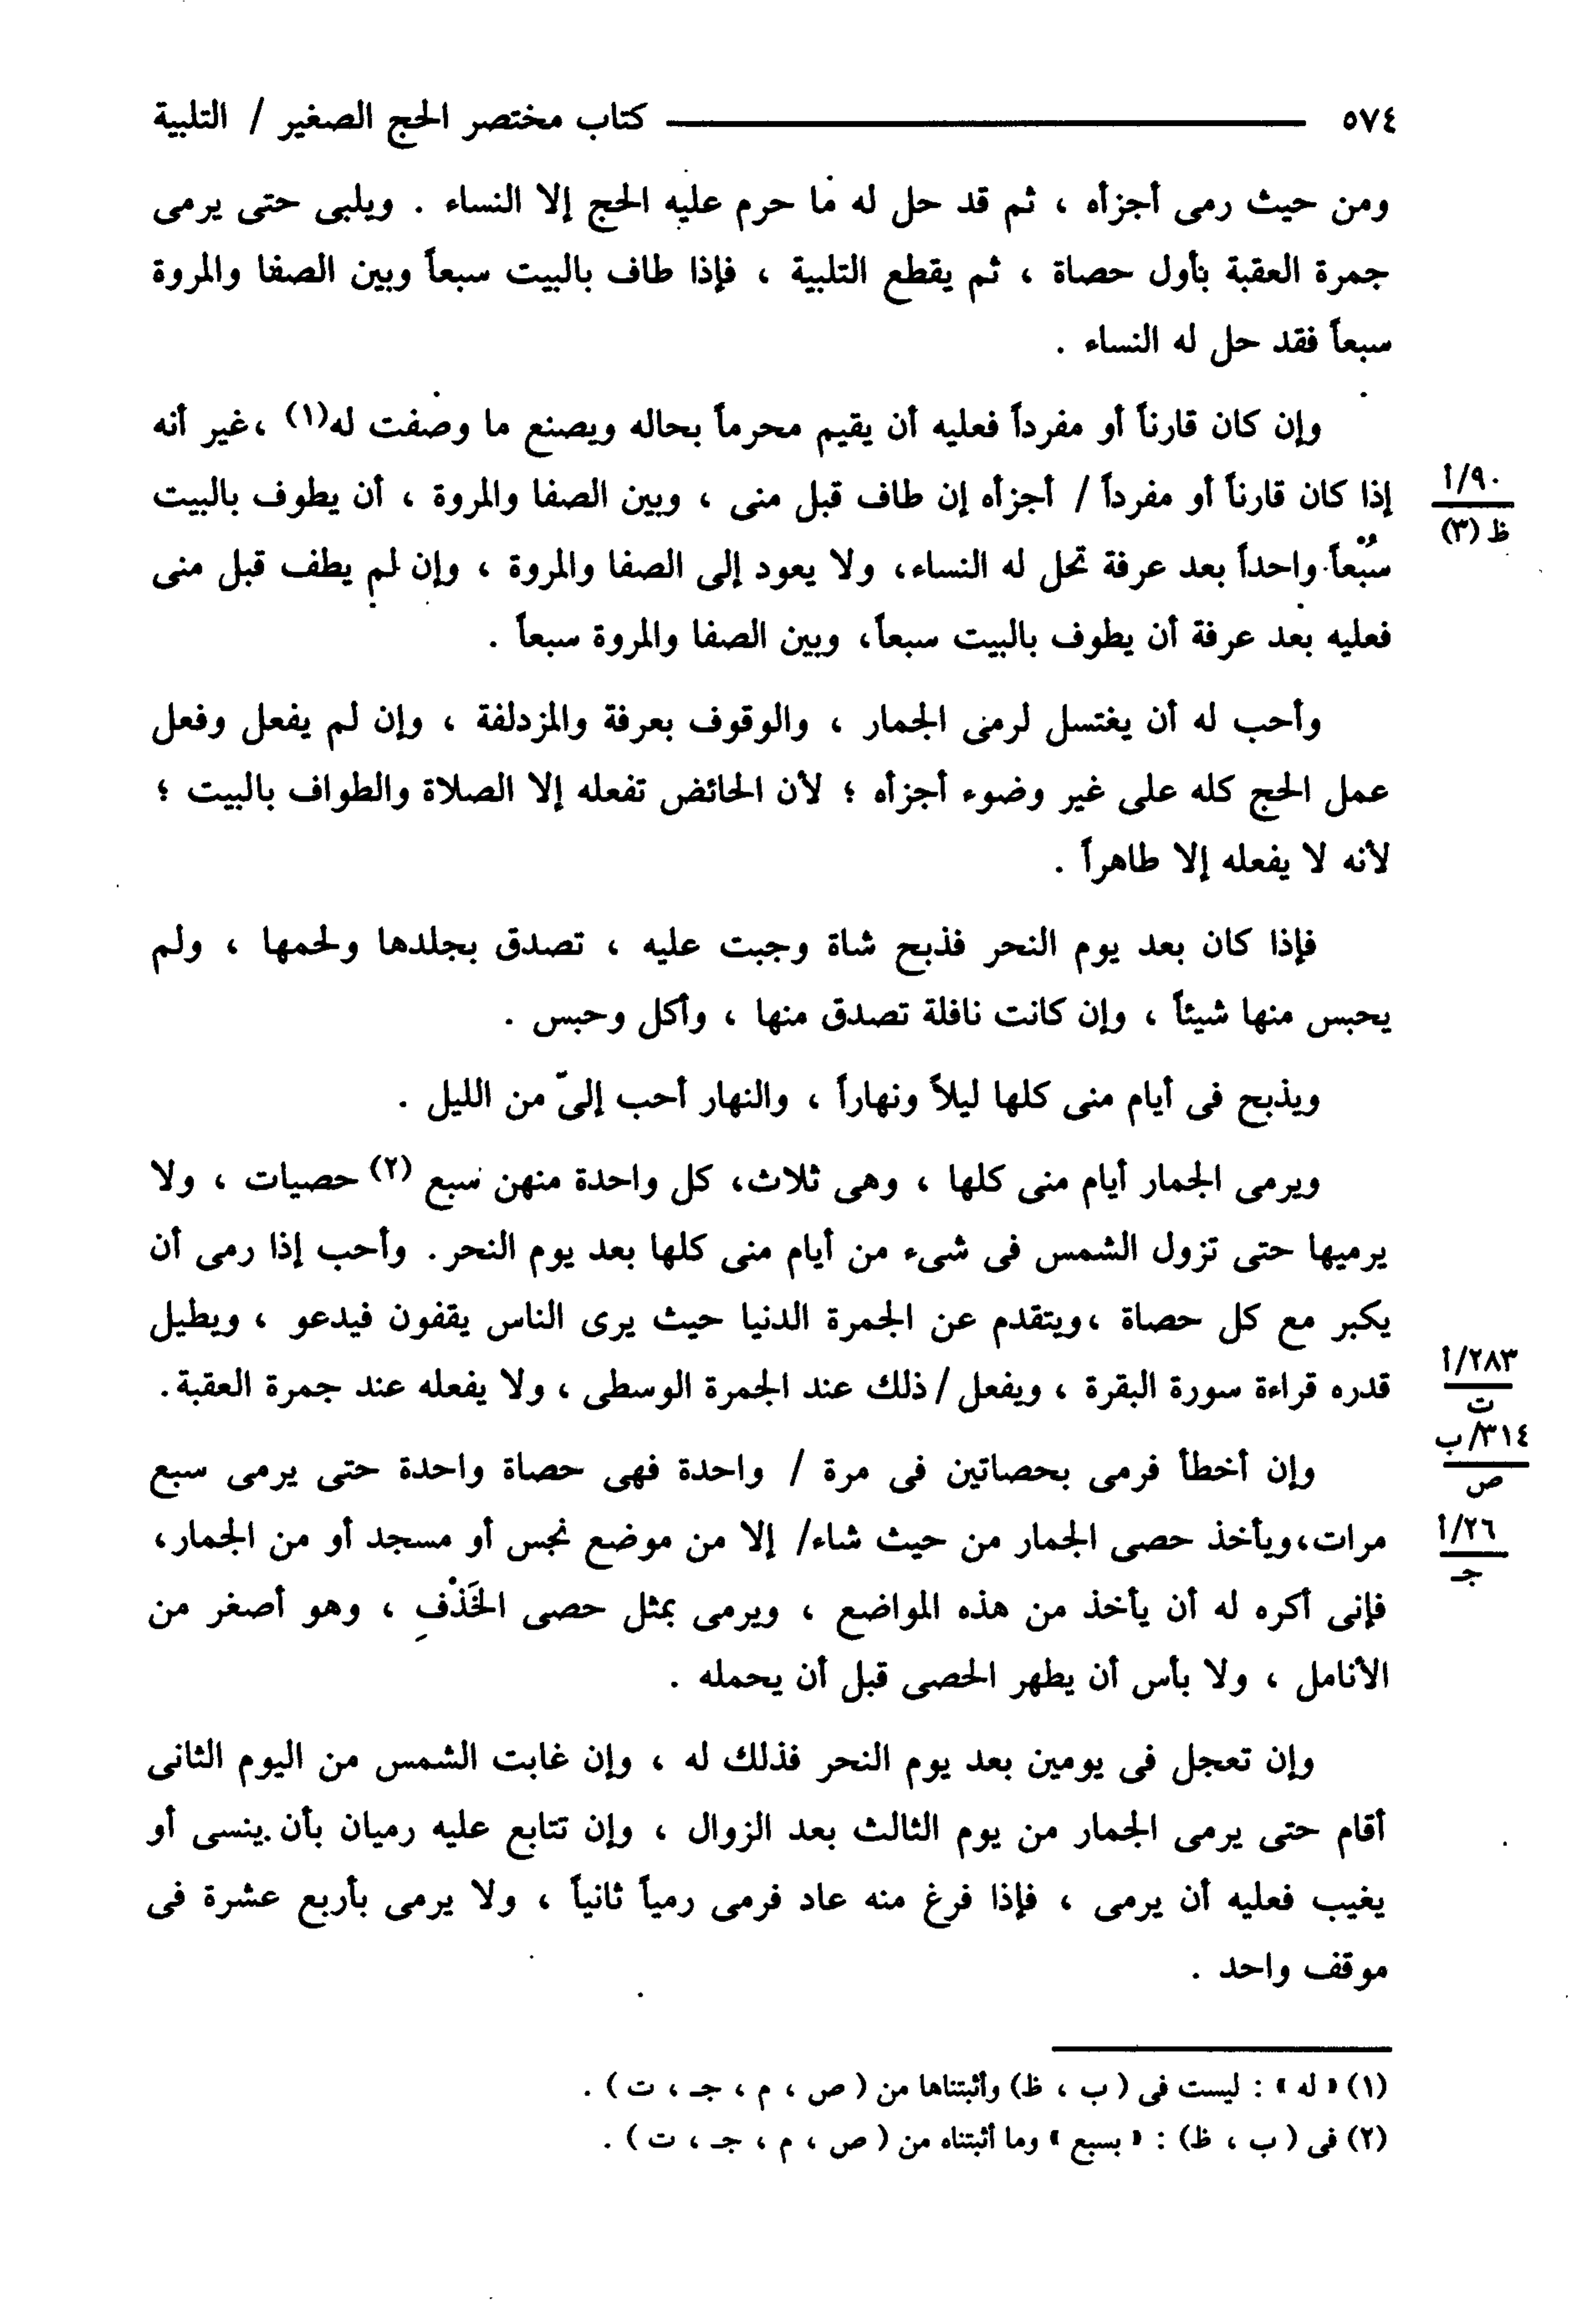 ٥٧٤ كتاب مختصر الحج الصغير / التلبية
ومن حيث رمى أجزأه ، ثم قد حل له ما حرم عليه الحج إلا النساء . ويلبى حتى يرمى
جمرة العقبة بأول حصاة ، ثم يقطع التلبية ، فإذا طاف بالبيت سبعاً وبين الصفا والمروة
سبعاً فقد حل له النساء .
وإن كان قارناً أو مفرداً فعليه أن يقيم محرماً بحاله ويصنع ما وصفت له(١) ، غير أنه
إذا كان قارناً أو مفرداً / أجزأه إن طاف قبل منى ، وبين الصفا والمروة ، أن يطوف بالبيت
٩٠/أ
ظ (٣)
سُبْعاً واحداً بعد عرفة تحل له النساء، ولا يعود إلى الصفا والمروة ، وإن لم يطف قبل منى
فعليه بعد عرفة أن يطوف بالبيت سبعاً، وبين الصفا والمروة سبعاً .
وأحب له أن يغتسل لرمى الجمار ، والوقوف بعرفة والمزدلفة ، وإن لم يفعل وفعل
عمل الحج كله على غير وضوء أجزأه ؛ لأن الحائض تفعله إلا الصلاة والطواف بالبيت ؛
لأنه لا يفعله إلا طاهراً .
فإذا كان بعد يوم النحر فذبح شاة وجبت عليه ، تصدق بجلدها ولحمها ، ولم
يحبس منها شيئاً ، وإن كانت نافلة تصدق منها ، وأكل وحبس .
ويذبح فى أيام منى كلها ليلاً ونهاراً ، والنهار أحب إلىّ من الليل .
ويرمى الجمار أيام منى كلها ، وهى ثلاث، كل واحدة منهن سبع (٢) حصيات ، ولا
يرميها حتى تزول الشمس فى شىء من أيام منى كلها بعد يوم النحر. وأحب إذا رمى أن
يكبر مع كل حصاة ،ويتقدم عن الجمرة الدنيا حيث يرى الناس يقفون فيدعو ، ويطيل
قدره قراءة سورة البقرة ، ويفعل / ذلك عند الجمرة الوسطى ، ولا يفعله عند جمرة العقبة.
٢٨٣/أ
ت
وإن أخطأ فرمى بحصاتين فى مرة / واحدة فهى حصاة واحدة حتى يرمى سبع
٣١٤/ب
ص
مرات،ويأخذ حصى الجمار من حيث شاء/ إلا من موضع نجس أو مسجد أو من الجمار،
٢٦/أ
جـ
فإنى أكره له أن يأخذ من هذه المواضع ، ويرمى بمثل حصى الخَذْفِ ، وهو أصغر من
الأنامل ، ولا بأس أن يطهر الحصى قبل أن يحمله .
وإن تعجل فى يومين بعد يوم النحر فذلك له ، وإن غابت الشمس من اليوم الثانى
أقام حتى يرمى الجمار من يوم الثالث بعد الزوال ، وإن تتابع عليه رميان بأن ينسى أو
يغيب فعليه أن يرمى ، فإذا فرغ منه عاد فرمى رمياً ثانياً ، ولا يرمى بأربع عشرة فى
موقف واحد .
(١) « له » : ليست فى ( ب ، ظ) وأثبتناها من ( ص ، م ، جـ ، ت ) .
(٢) فى ( ب ، ظ) : « بسبع » وما أثبتناه من ( ص ، م ، جـ ، ت ) .